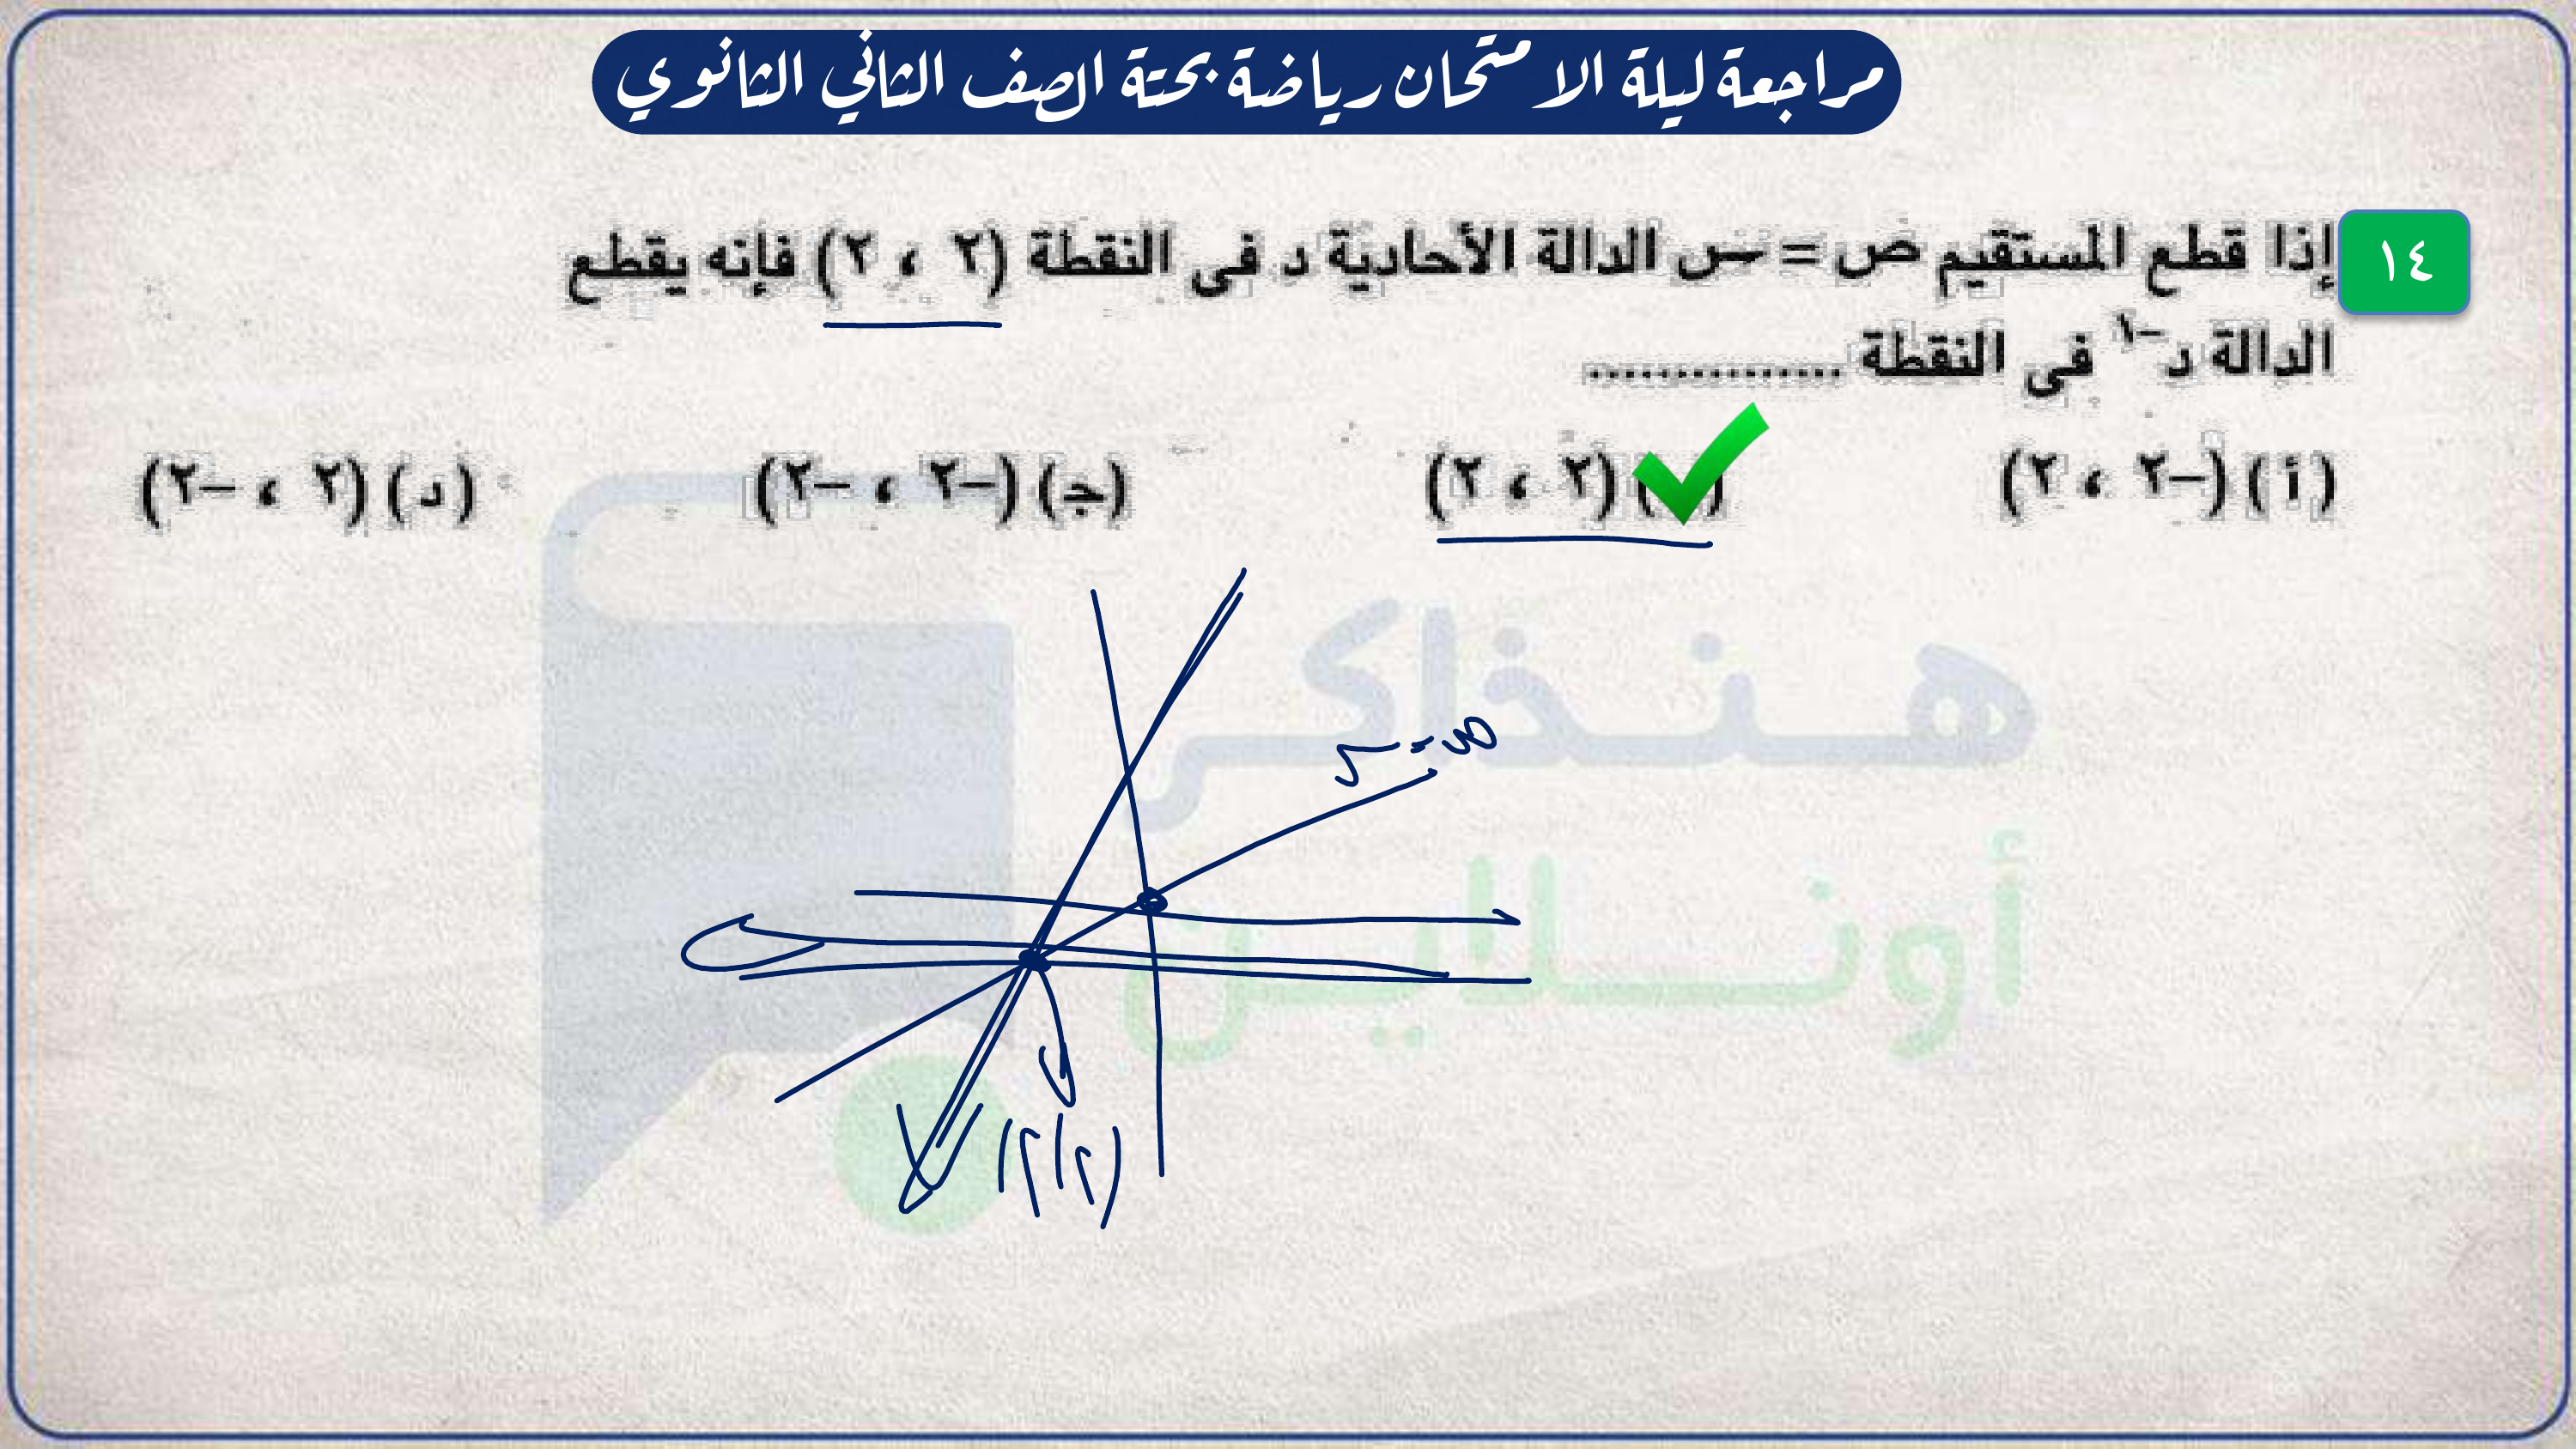 مراجعة ليلة الامتحان رياضة بحتة الصف الثاني الثانوي
١٤ إذا قطع المستقيم ص = س الدالة الأحادية د فى النقطة (٢ ، ٢) فإنه يقطع
الدالة د⁻¹ فى النقطة ...............
(أ) (-٢ ، ٢) (٢ ، ٢) (جـ) (-٢ ، -٢) (د) (٢ ، -٢)
ص = س
(٢،٢)
هنذاكر
أونلاين